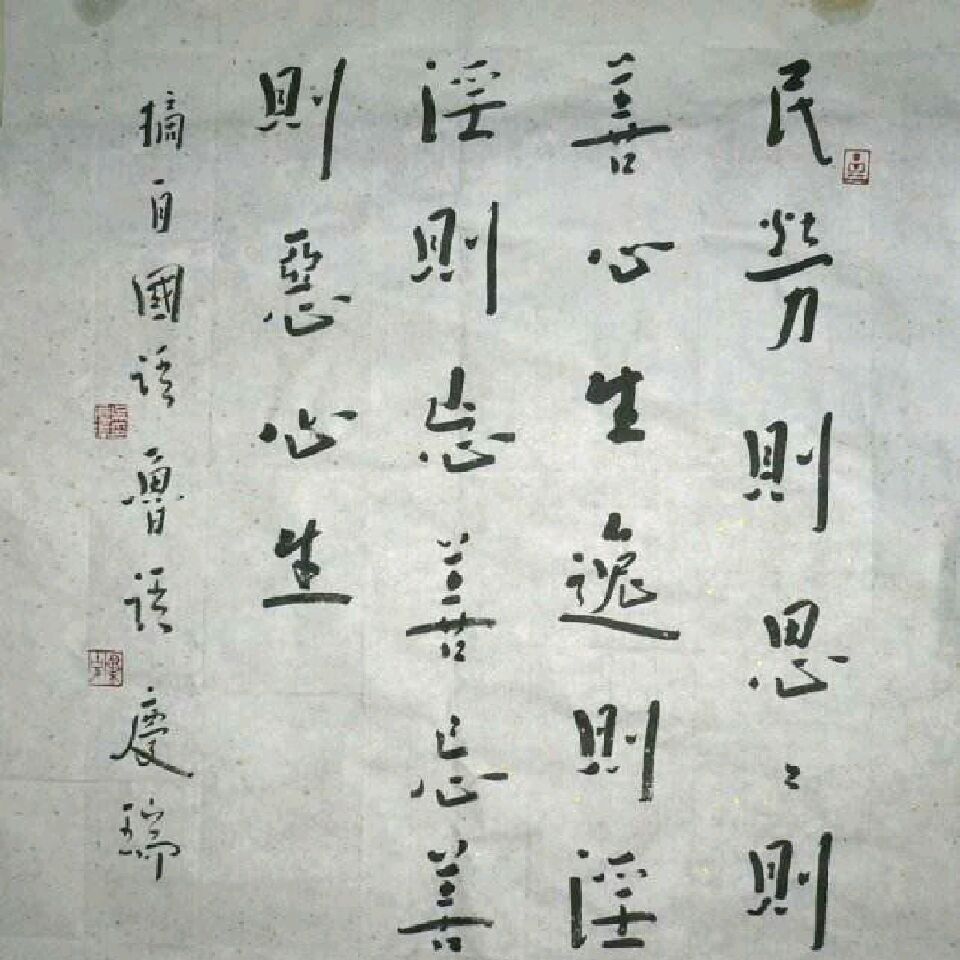 民勞則思〻則
善心生逸則淫
淫則忘善忘善
則惡心生
摘自國语魯语慶瑞